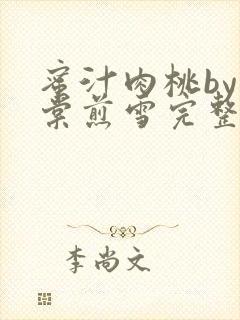 蜜汁肉桃by
棠煎雪完整
李尚文